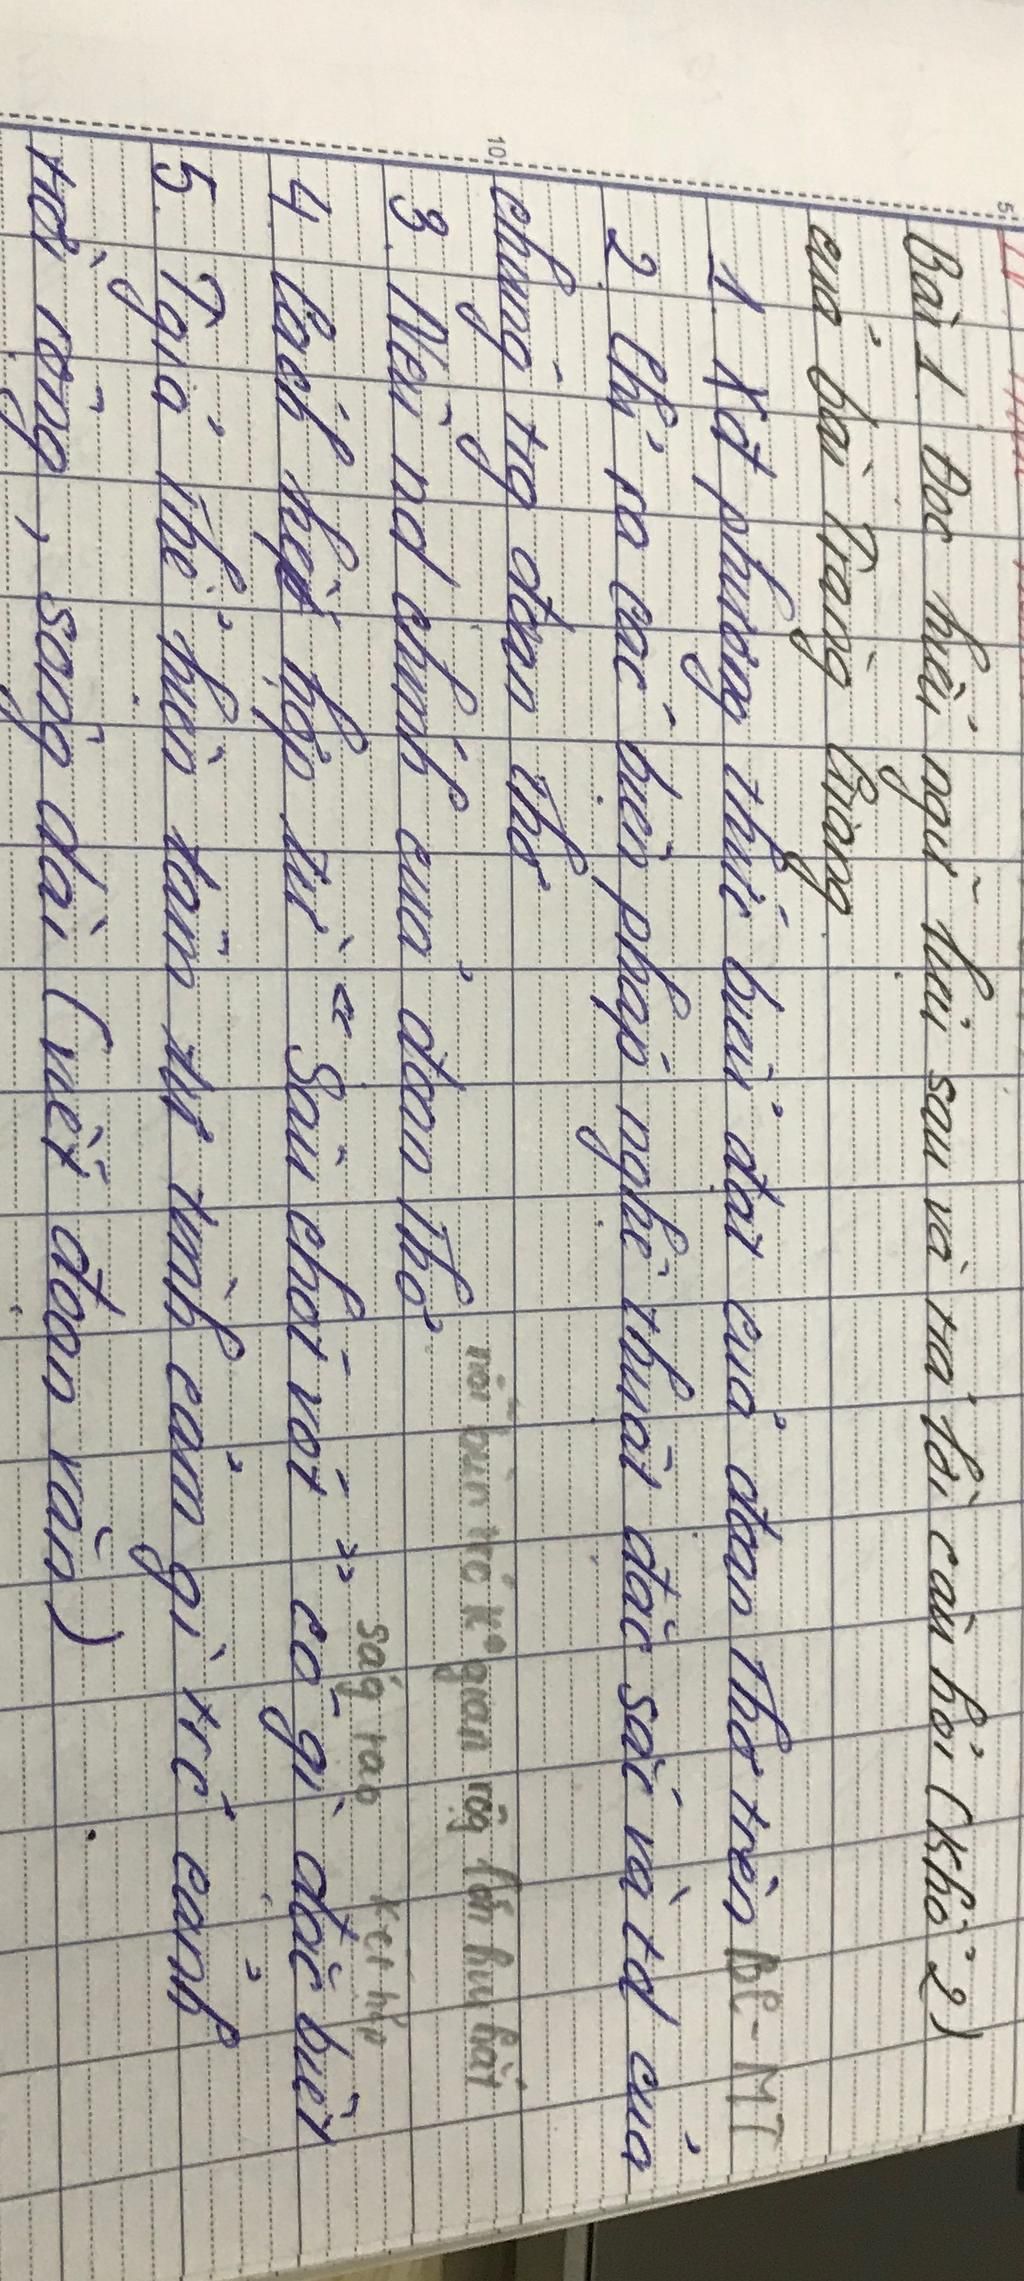 Bài 1. Đọc hiểu ngữ liệu sau và trả lời câu hỏi (khổ 2)
của bài Tràng Giang
1. Xđ phương thức biểu đạt của đoạn thơ trên BC - MT
2. Chỉ ra các biện pháp nghệ thuật đặc sắc và td của
chúng trg đoạn thơ
3. Nêu nd chính của đoạn thơ
nỗi buồn trc k° gian rộg lớn hiu hắt
4. Cách kết hợp từ " Sâu chót vót " có gì đặc biệt
ság tạo kết hợp
5. Tgiả thể hiện tâm tư tình cảm gì trc cảnh
trời rộng, sông dài (viết đoạn văn)